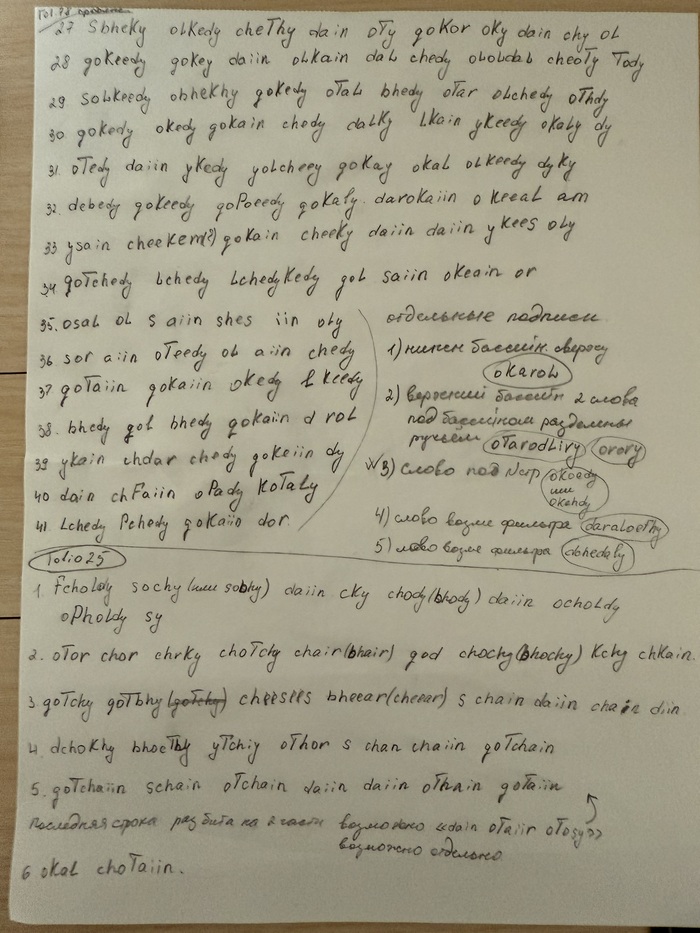 27 Sbheky olkedy cheThy dain oTy goKor oKy dain chy ol
28 goKeedy goKey daiin olkain dal chedy ololdal cheoTy Tody
29 Solkeedy ohheKhy goKedy oTal bhedy oTar olchedy oThdy
30. goKedy oKedy goKain chedy dalKy LKain yKeedy oKaly dy
31. oTedy daiin yKedy yolcheey goKay oKal olKeedy dyKy
32. debedy goKeedy goPoeedy goKaly daroKaiin oKeeal am
33 ysain cheeKem(?) goKain cheeKy daiin daiin yKees oly
34 goTchedy Lchedy LchedyKedy gol saiin oKeain or
35. osal ol s aiin shes iin oly
36 sor aiin oTeedy ol aiin chedy
37 goTaiin goKaiin oKedy l Keedy
38. bhedy gol bhedy goKaiin d rol
39 yKain chdar chedy goKeiin dy
40 dain chFaiin oPady KoTaly
41. Lchedy Pchedy goKaiio dor.
отдельные подписи
1) нижен бассейн. сверху
oKarol
2) верхний бассейн 2 слова
под бассейном разделены
ручьем oTarodLiry orory
√3) слово под
oKoedy
или
oKehdy
4) слово возле фильтра daraloeThy
5) слово возле фильтра obhedaly
Folio 25
1. Fcholdy sochy (или sobhy) daiin cKy chody (bhody) daiin ocholdy
oPholdy sy
2. oTor chor chrKy choTchy chair (bhair) god chochy (bhochy) Kchy chKain.
3. goTchy goTbhy (goTchy) cheesees bheear (cheear) s chain daiin chain diin
4. dchoKhy bhocThy yTchiy oThor s chan chaiin goTchain
5. goTchaiin schain oTchain daiin daiin oThain goTaiin
последняя строка разбита на 2 части возможно «dain oTaiir oTosy»
возможно отдельно
6 oKal choTaiin.